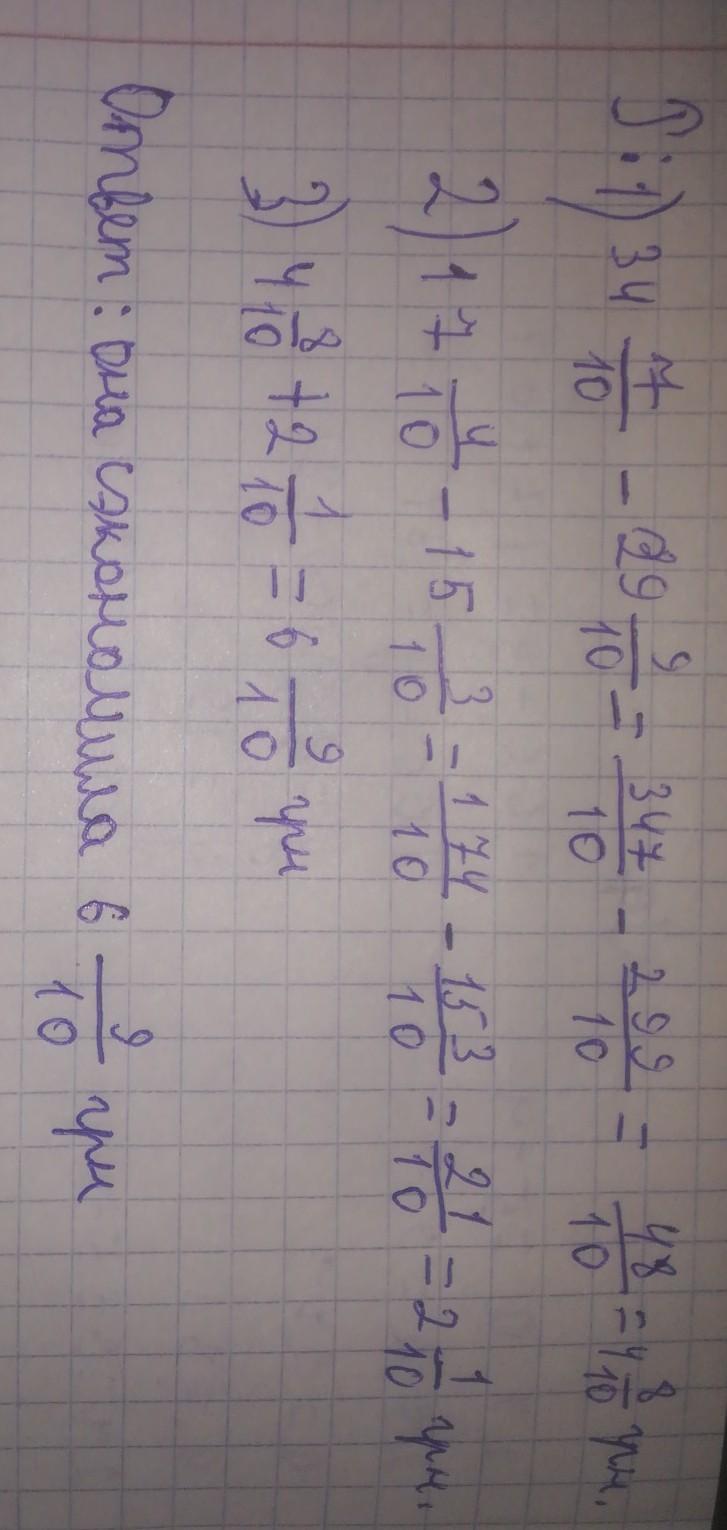 Р:1) 34 7/10 - 29 9/10 = 347/10 - 299/10 = 48/10 = 4 8/10 грн.
2) 17 4/10 - 15 3/10 = 174/10 - 153/10 = 21/10 = 2 1/10 грн.
3) 4 8/10 + 2 1/10 = 6 9/10 грн
Ответ: она сэкономила 6 9/10 грн